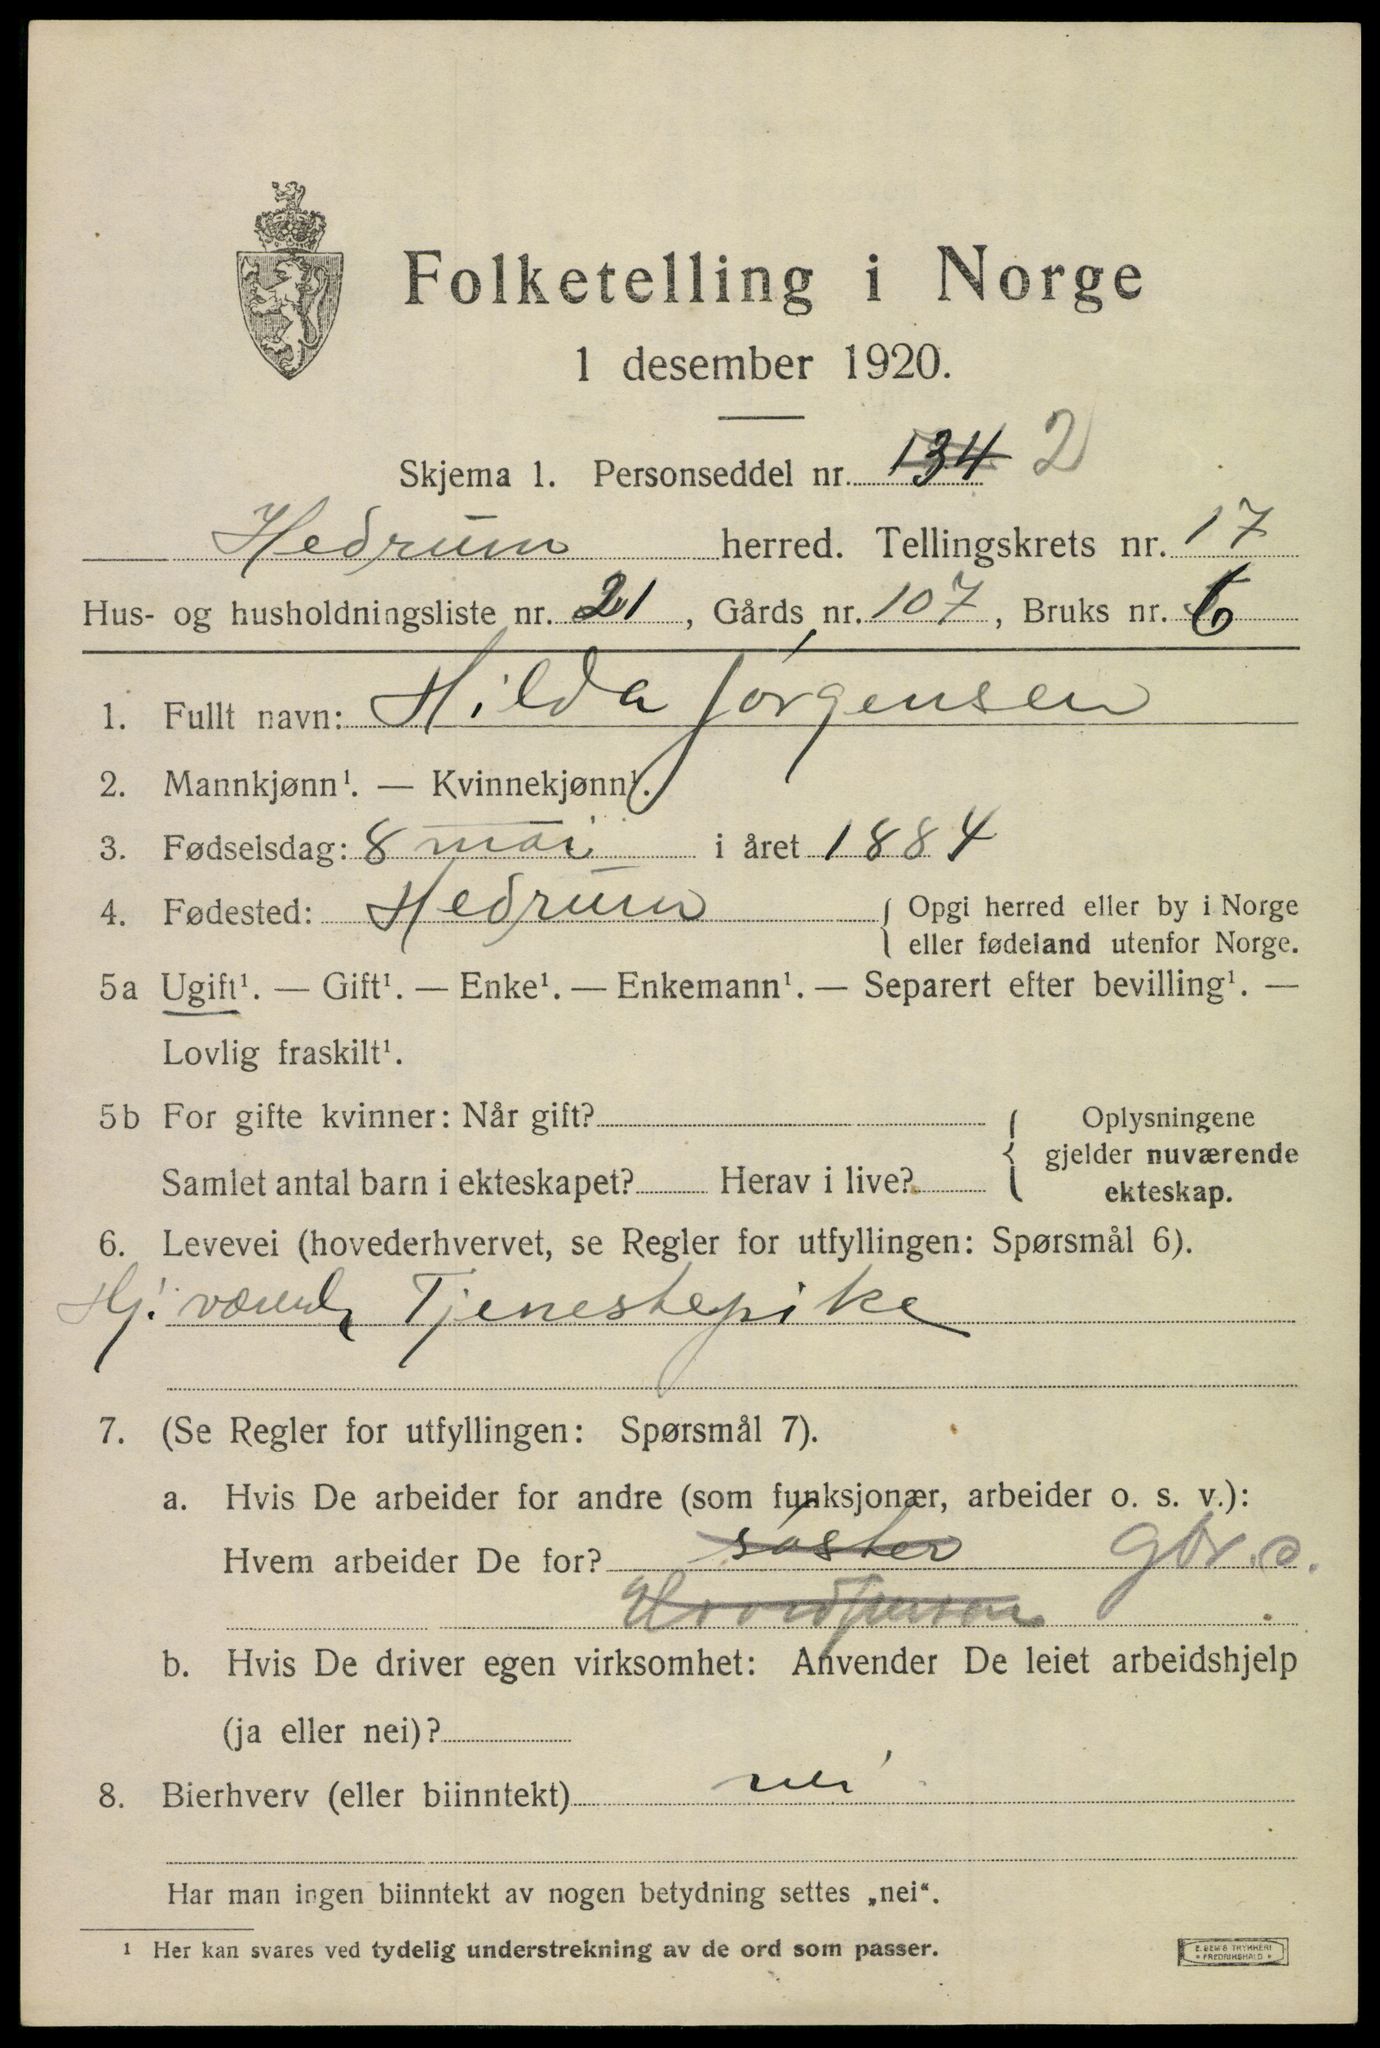 Folketelling i Norge
1 desember 1920.
Skjema 1. Personseddel nr. 134 2
Hedrum herred. Tellingskrets nr. 17
Hus- og husholdningsliste nr. 21, Gårds nr. 107, Bruks nr. 6
1. Fullt navn: Hilda Jørgensen
2. Mannkjønn¹. — Kvinnekjønn¹.
3. Fødselsdag: 8 mai i året 1884
4. Fødested: Hedrum { Opgi herred eller by i Norge
eller fødeland utenfor Norge.
5a Ugift¹. — Gift¹. — Enke¹. — Enkemann¹. — Separert efter bevilling¹. —
Lovlig fraskilt¹.
5b For gifte kvinner: Når gift?
Samlet antal barn i ekteskapet? Herav i live?
{ Oplysningene
gjelder nuværende
ekteskap.
6. Levevei (hovederhvervet, se Regler for utfyllingen: Spørsmål 6).
Hj. værend Tjenestepike
7. (Se Regler for utfyllingen: Spørsmål 7).
a. Hvis De arbeider for andre (som funksjonær, arbeider o. s. v.):
Hvem arbeider De for? søster gbr. d.
b. Hvis De driver egen virksomhet: Anvender De leiet arbeidshjelp
(ja eller nei)?
8. Bierhverv (eller biinntekt) nei
Har man ingen biinntekt av nogen betydning settes „nei“.
¹ Her kan svares ved tydelig understrekning av de ord som passer.
E. SEM'S TRYKKERI
* FREDRIKSHALD *